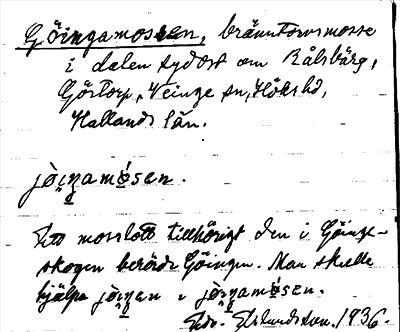 Göingamossen, bränntorvsmosse
i dalen sydost om Bålsbärg,
Göstorp, Veinge sn, Höks hd,
Hallands län.
jòi̯ŋamósen.
Ett mosslott tillhörigt den i Göinge-
skogen berörde Göingen. Man skulle
hjälpa jòi̯ŋen i jòi̯ŋamósen.
1936.